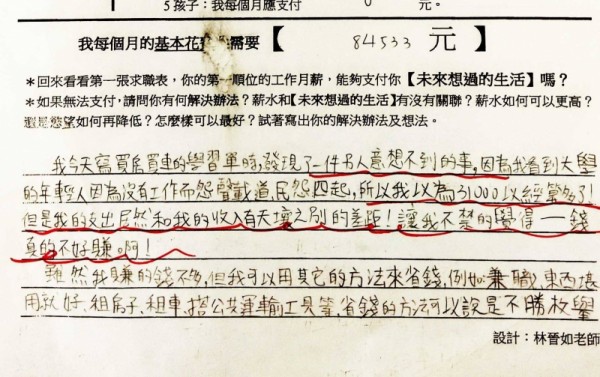 5 孩子：我每個月應支付 0 元。
我每個月的基本花費需要【 84533 元 】
＊回來看看第一張求職表，你的第一順位的工作月薪，能夠支付你【未來想過的生活】嗎？
＊如果無法支付，請問你有何解決辦法？薪水和【未來想過的生活】有沒有關聯？薪水如何可以更高？
還是慾望如何再降低？怎麼樣可以最好？試著寫出你的解決辦法及想法。
我今天寫買房買車的學習單時，發現了一件令人意想不到的事，因為我看到大學
的年輕人因為沒有工作而怨聲載道、民怨四起，所以我以為31000以經蠻多了！
但是我的支出居然和我的收入有天壤之別的差距！讓我不禁的覺得一錢
真的不好賺啊！
雖然我賺的錢不多，但我可以用其它的方法來省錢，例如：兼職、東西堪
用就好、租房子、租車、搭公共運輸工具等，省錢的方法可以說是不勝枚舉
設計：林晉如老師